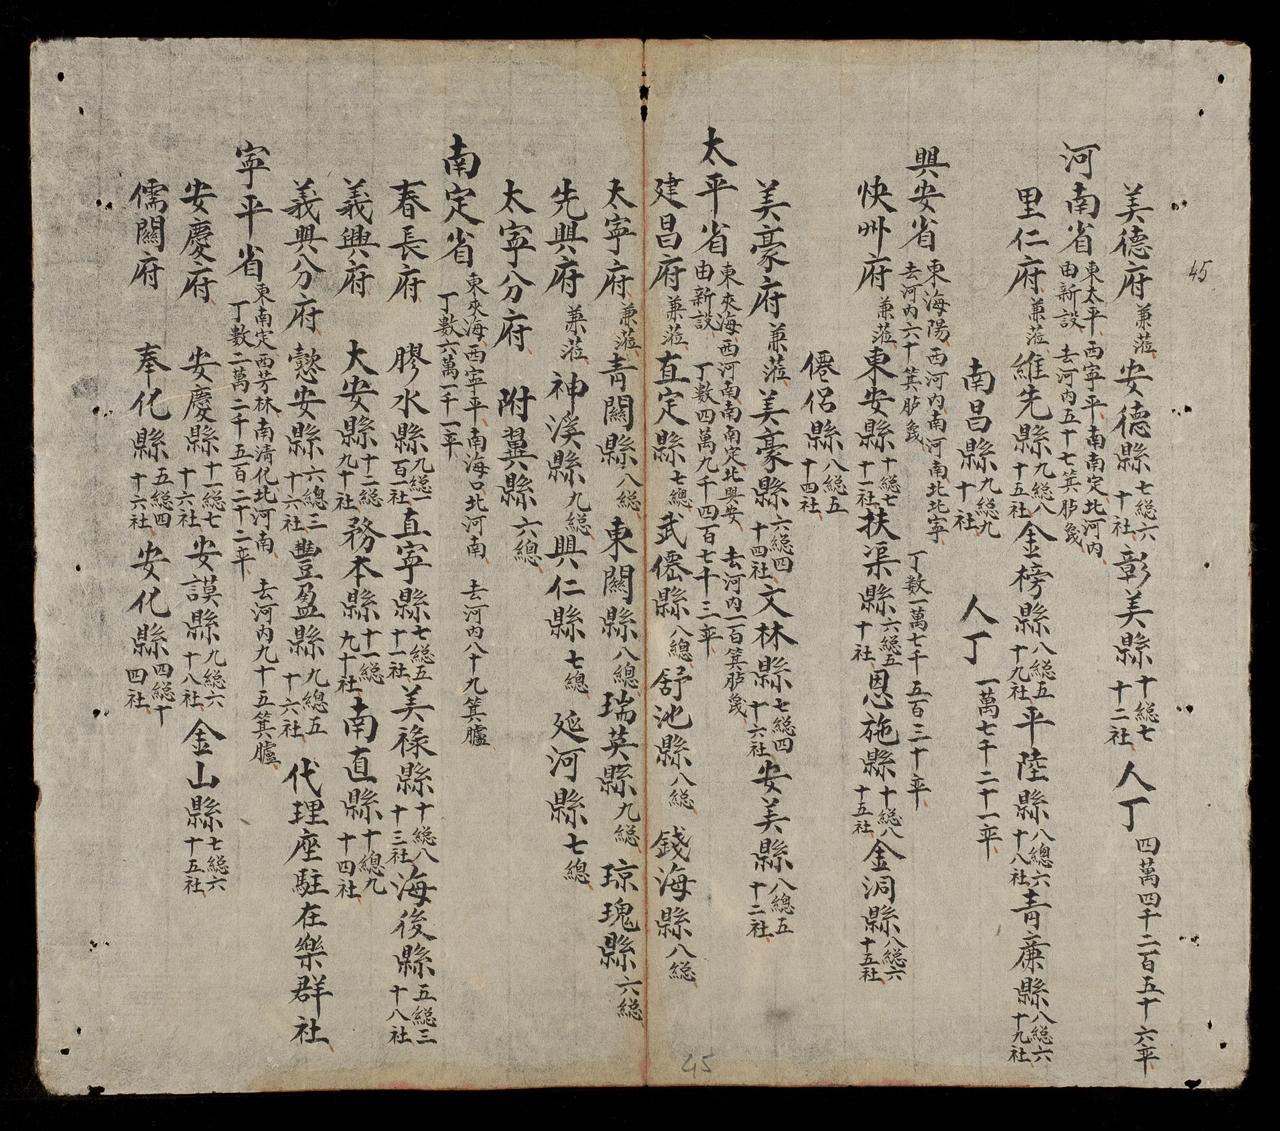 45
美德府兼涖安德縣七総六十社彰美縣十総七十二社人丁四萬四千二百五十六卒
河南省東太平西寧平南南定北河内由新設去河内五十七箕胪幾
里仁府兼涖維先縣九総八十五社金榜縣八総五十九社平陸縣八總六十八社青廉縣八総六十九社
南昌縣九総九十社人丁一萬七千二十一卒
興安省東海陽西河内南河南北北寧去河内六十箕胪幾丁数一萬七千五百三十卒
快州府兼涖東安縣十総七十一社扶渠縣六総五十社恩施縣十総八十五社金洞縣八総六十五社
僊侶縣八総五十四社
美豪府兼涖美豪縣六総四十四社文林縣七総四十六社安美縣八總五十二社
太平省東夾海西河南南南定北興安由新設去河内一百箕胪幾丁数四萬九千四百七十三卒
建昌府兼涖直定縣七總武僊縣八總舒池縣八総錢海縣八総
太寧府兼涖青關縣八総東關縣八總瑞英縣九総琼瑰縣六総
先興府兼涖神溪縣九総興仁縣七總延河縣七總
太寧分府附翼縣六總
南定省東夾海西寧平南海口北河南去河内八十九箕臚丁数六萬一千一卒
春長府膠水縣九総一百一社直寧縣七総五十一社美祿縣十総八十三社海後縣五総三十八社
義興府大安縣十二総九十社務本縣十一総九十社南直縣十總九十四社
義興分府懿安縣六總三十六社豐盈縣九總五十六社代理座駐在樂群社
寧平省東南定西芳林南清化北河南去河内九十五箕臚丁数二萬二千五百二十二卒
安慶府安慶縣十一総七十六社安謨縣九総六十八社金山縣七総六十五社
儒關府奉化縣五総四十六社安化縣四総十四社
45